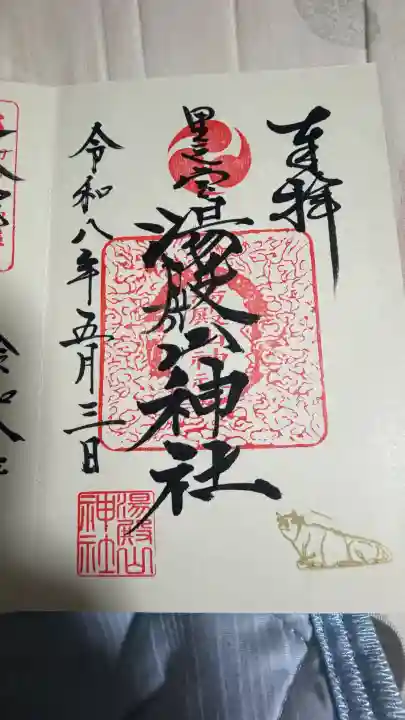 奉拝
里之宮
湯殿山神社
令和八年五月三日
湯殿山
神社